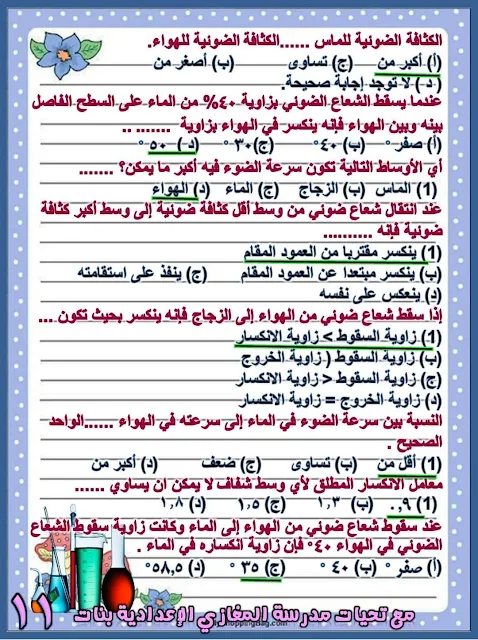 الكثافة الضوئية للماس ......الكثافة الضوئية للهواء.
(أ) أكبر من (ج) تساوى (ب) أصغر من
( د ) لا توجد إجابة صحيحة.
عندما يسقط الشعاع الضوئي بزاوية ٤٠% من الماء على السطح الفاصل
بينه وبين الهواء فإنه ينكسر في الهواء بزاوية ....... ..
(أ) صفر ° (ب) ٤٠° (ج) ٣٠° ( د ) ٥٠ °
أي الأوساط التالية تكون سرعة الضوء فيه أكبر ما يمكن؟ .......
(1) الماس (ب) الزجاج (ج) الماء (د) الهواء
عند انتقال شعاع ضوئي من وسط أقل كثافة ضوئية إلى وسط أكبر كثافة
ضوئية فإنه ..........
(1) ينكسر مقتربا من العمود المقام
(ب) ينكسر مبتعدا عن العمود المقام (ج) ينفذ على استقامته
(د) ينعكس على نفسه
إذا سقط شعاع ضوئي من الهواء إلى الزجاج فإنه ينكسر بحيث تكون ...
(1) زاوية السقوط > زاوية الانكسار
(ب) زاوية السقوط ( زاوية الخروج
(ج) زاوية السقوط < زاوية الانكسار
(د) زاوية الخروج = زاوية الانكسار
النسبة بين سرعة الضوء في الماء إلى سرعته في الهواء ......الواحد
الصحيح .
(1) أقل من (ب) تساوى (ج) ضعف (د) أكبر من
معامل الانكسار المطلق لأي وسط شفاف لا يمكن ان يساوي ......
(1) ٠,٩ (ب) ١,٣ (ج) ١,٥ (د) ١,٨
عند سقوط شعاع ضوئي من الهواء إلى الماء وكانت زاوية سقوط الشعاع
الضوئي في الهواء ٤٠° فإن زاوية انكساره في الماء .
(أ) صفر ° (ب) ٤٠ ° (ج) ٣٥ ° (د) ٥٨,٥°
مع تحيات مدرسة المغازي الإعدادية بنات ١١